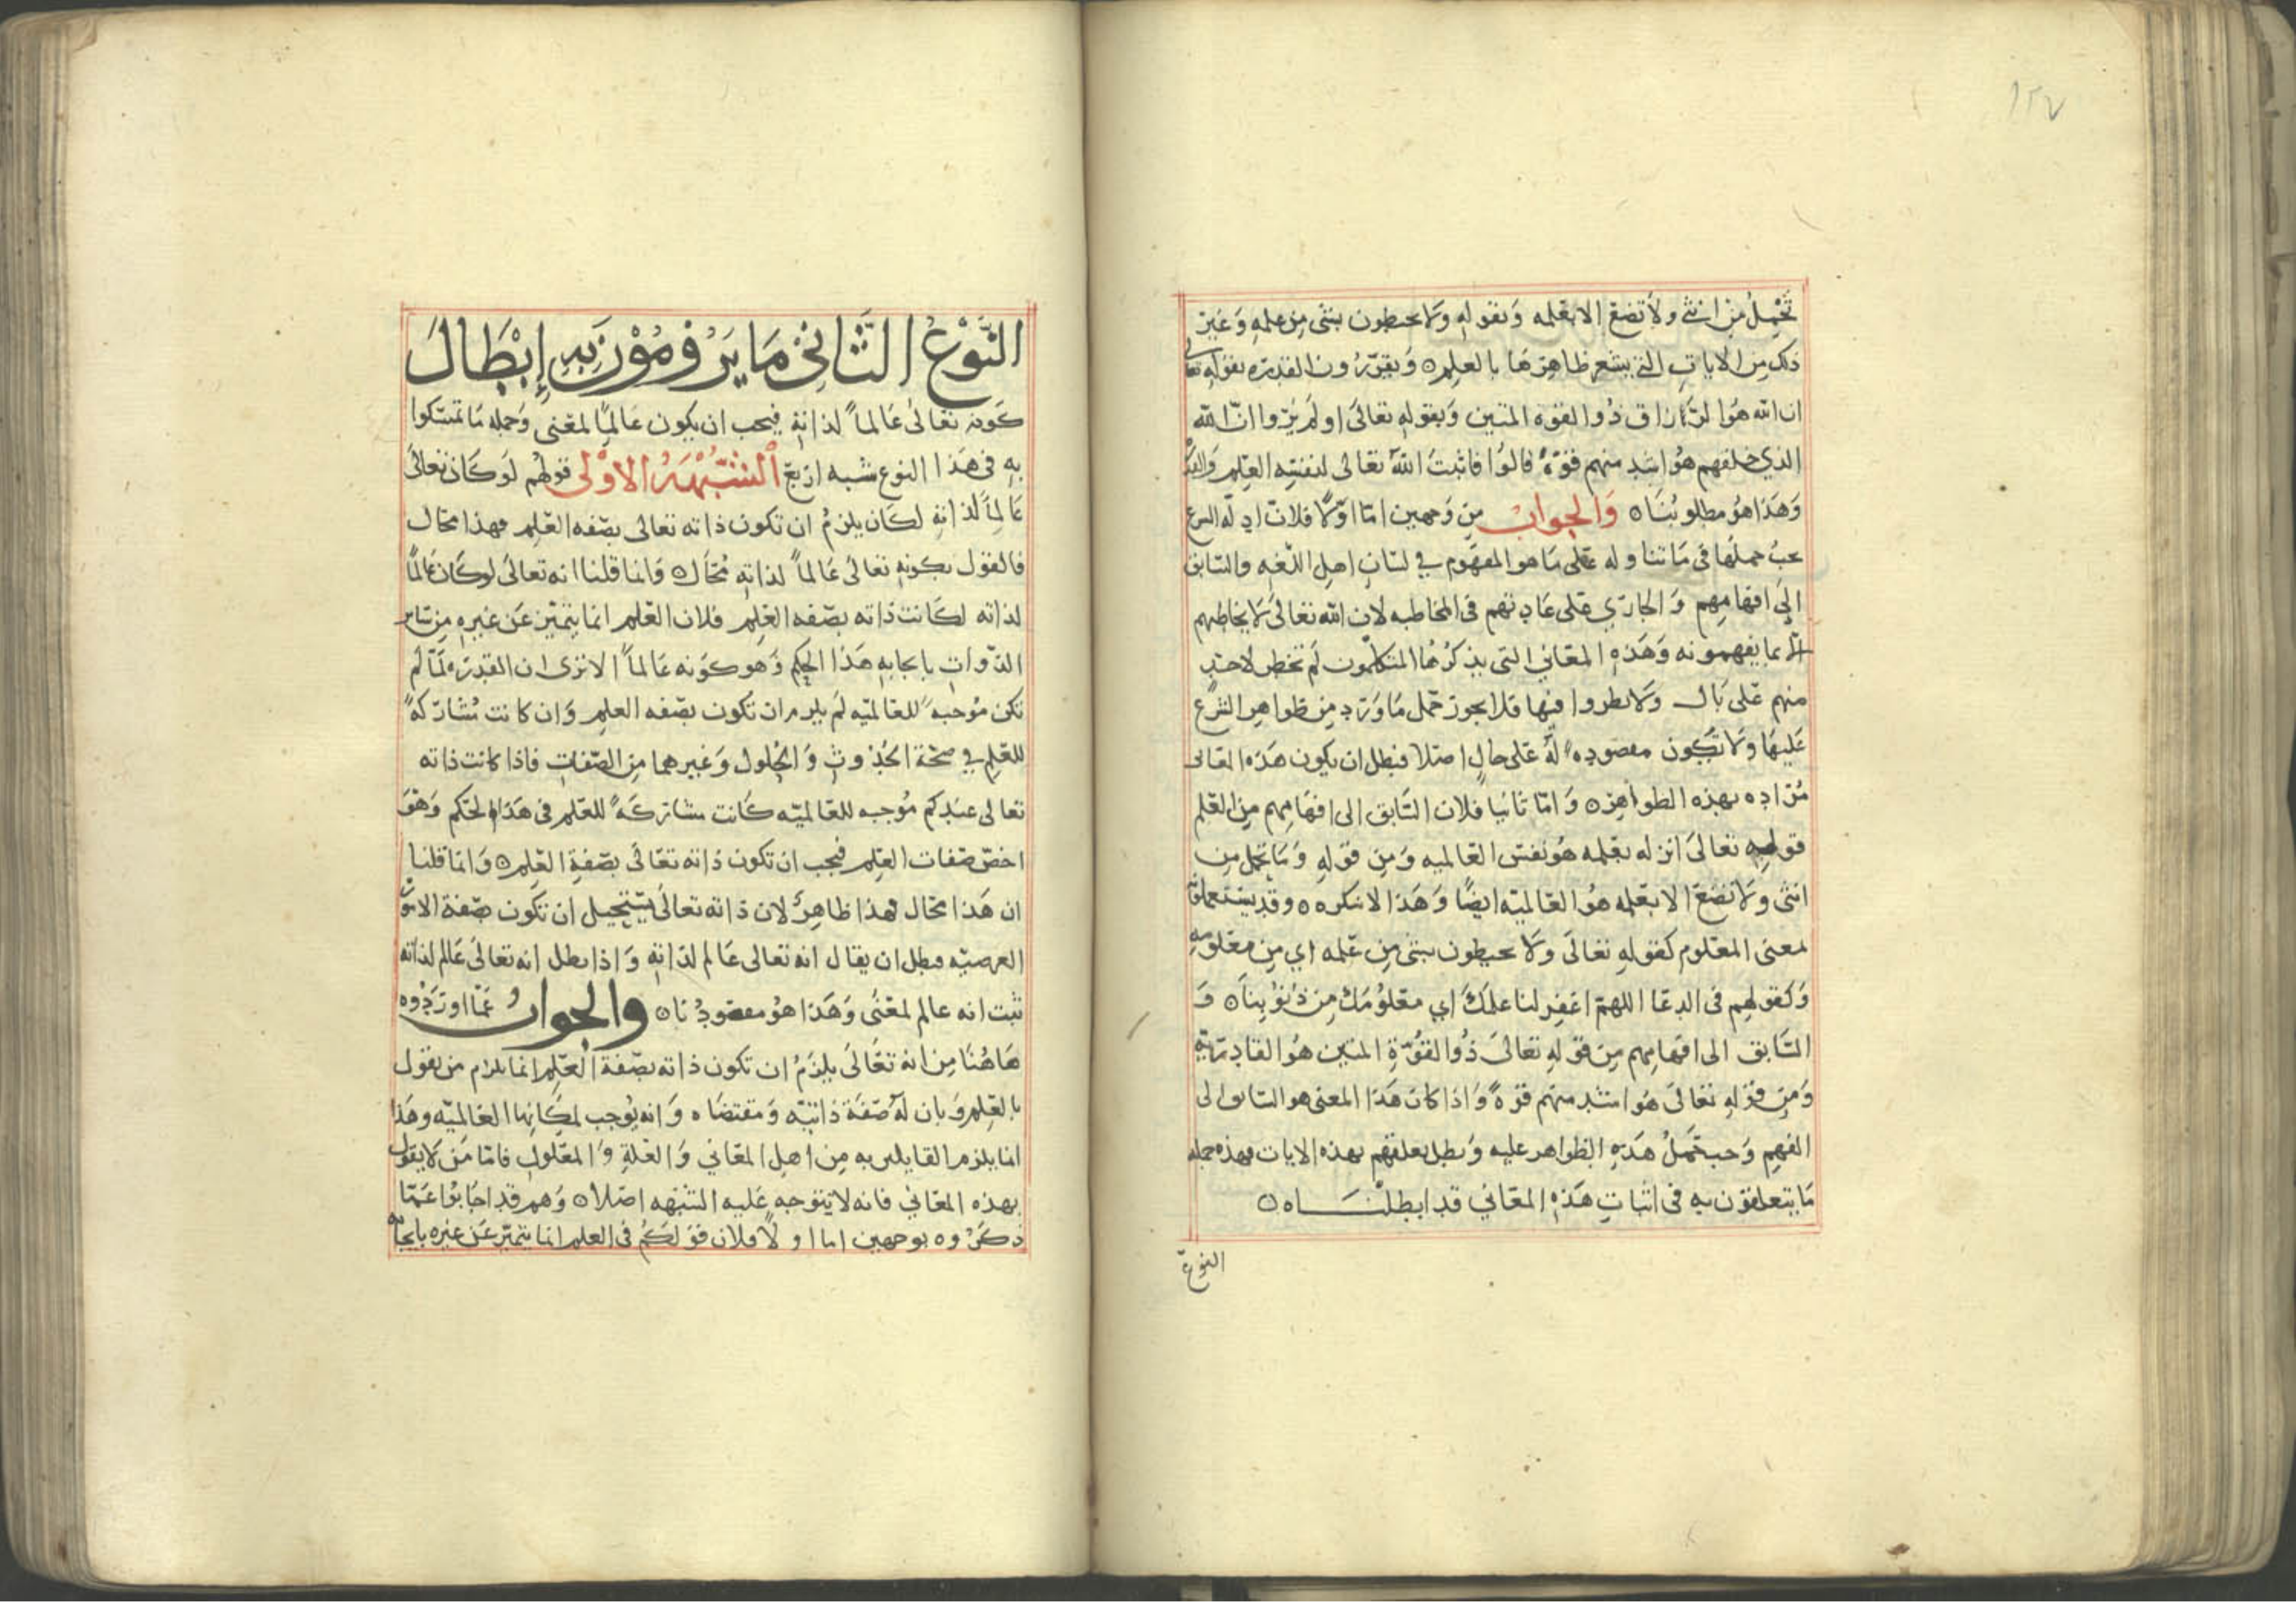 ١٢٧
تحمل من انثى ولا تضع الا بعلمه وبقوله ولا يحيطون بشى من علمه وغير
ذلك من الايات التي يشعر ظاهرها بالعلم ۝ ويقررون القدره بقوله تعالى
ان الله هو الرزاق ذوا القوه المتين وبقوله تعالى اولم يروا ان الله
الذي خلقهم هو اشد منهم قوة قالوا فاثبت الله تعالى لنفسه العلم والقدرة
وهذا هو مطلوبنا ۝ والجواب من وجهين اما اولا فلان ادله الشرع
يجب حملها فى ما تناوله على ما هو المفهوم في لسان اهل اللغه والسابق
الى افهامهم والجاري على عادتهم فى المخاطبه لان الله تعالى لا يخاطبهم
الا بما يفهمونه وهذه المعاني التى يذكرها المتكلمون لم تخطر لاحد
منهم على بال ولا نظروا فيها فلا يجوز حمل ما ورد من ظواهر الشرع
عليها ولا تكون مقصوده له على حال اصلا فبطل ان يكون هذه المعانى
مراده بهذه الظواهر ۝ واما ثانيا فلان السابق الى افهامهم من العلم
قوله تعالى انزله بعلمه هو نفس العالميه ومن قوله وما تحمل من
انثى ولا تضع الا بعلمه هو العالميه ايضا وهذا لا ننكره ۝ وقد يستعملونه
بمعنى المعلوم كقوله تعالى ولا يحيطون بشى من علمه اي من معلومه
وكقولهم فى الدعا اللهم اغفر لنا علمك اي معلومك من ذنوبنا ۝ و
السابق الى افهامهم من قوله تعالى ذوا القوة المتين هو القادرية
ومن قوله تعالى هو اشد منهم قوة واذا كان هذا المعنى هو السابق الى
الفهم وجب حمل هذه الظواهر عليه وبطل تعلقهم بهذه الايات فهذه جمله
ما يتعلقون به فى اثبات هذه المعاني قد ابطلناه ۝
النوع
النوع الثاني ما يرومون به إبطال
كونه تعالى عالماً لذاته فيجب ان يكون عالما لمعنى وجمله ما تمسكوا
به فى هذا النوع شبه اربع الشبهة الاولى قولهم لو كان تعالى
عالماً لذاته لكان يلزم ان تكون ذاته تعالى بصفه العلم فهذا محال
فالقول بكونه تعالى عالماً لذاته محال ۝ وانما قلنا انه تعالى لو كان عالماً
لذاته لكانت ذاته بصفه العلم فلان العلم انما يتميز عن غيره من سائر
الذوات بايجابه هذا الحكم وهو كونه عالماً الا نرى ان القدره لما لم
تكن موجبه للعالميه لم يلزم ان تكون بصفه العلم وان كانت مشاركة
للعلم في صحة الحدوث والحلول وغيرهما من الصفات فاذا كانت ذاته
تعالى عندكم موجبه للعالميه كانت مشاركةً للعلم فى هذا الحكم وهو
اخص صفات العلم فيجب ان تكون ذاته تعالى بصفة العلم ۝ وانما قلنا
ان هذا محال فهذا ظاهر لان ذاته تعالى يستحيل ان تكون بصفة الامور
العرضيه فبطل ان يقال انه تعالى عالم لذاته واذا بطل انه تعالى عالم لذاته
ثبت انه عالم لمعنى وهذا هو مقصودنا ۝ والجواب عما اوردوه
هاهنا من انه تعالى يلزم ان تكون ذاته بصفة العلم انما يلزم من يقول
بالعلم وبان له صفة ذاتيه ومقتضاه وانه يوجب لمكانها العالميه وهذا
انما يلزم القايلين به من اهل المعاني والعلة والمعلول فاما من لا يقول
بهذه المعاني فانه لا يتوجه عليه الشبهه اصلا ۝ وهم قد اجابوا عما
ذكروه بوجهين اما اولاً فلان قولكم فى العلم انما يتميز عن غيره بايجابه